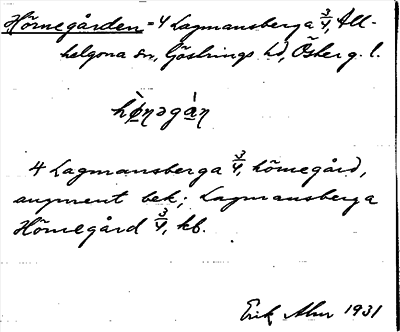 Hörnegården = 4 Lagmansberga 3/4, All-
helgona sn, Göstrings hd, Österg. l.
hø̀nəgàn
4 Lagmansberga 3/4, hörnegård,
augment bek; Lagmansberga
Hörnegård 3/4, kb.
Erik Alm 1931